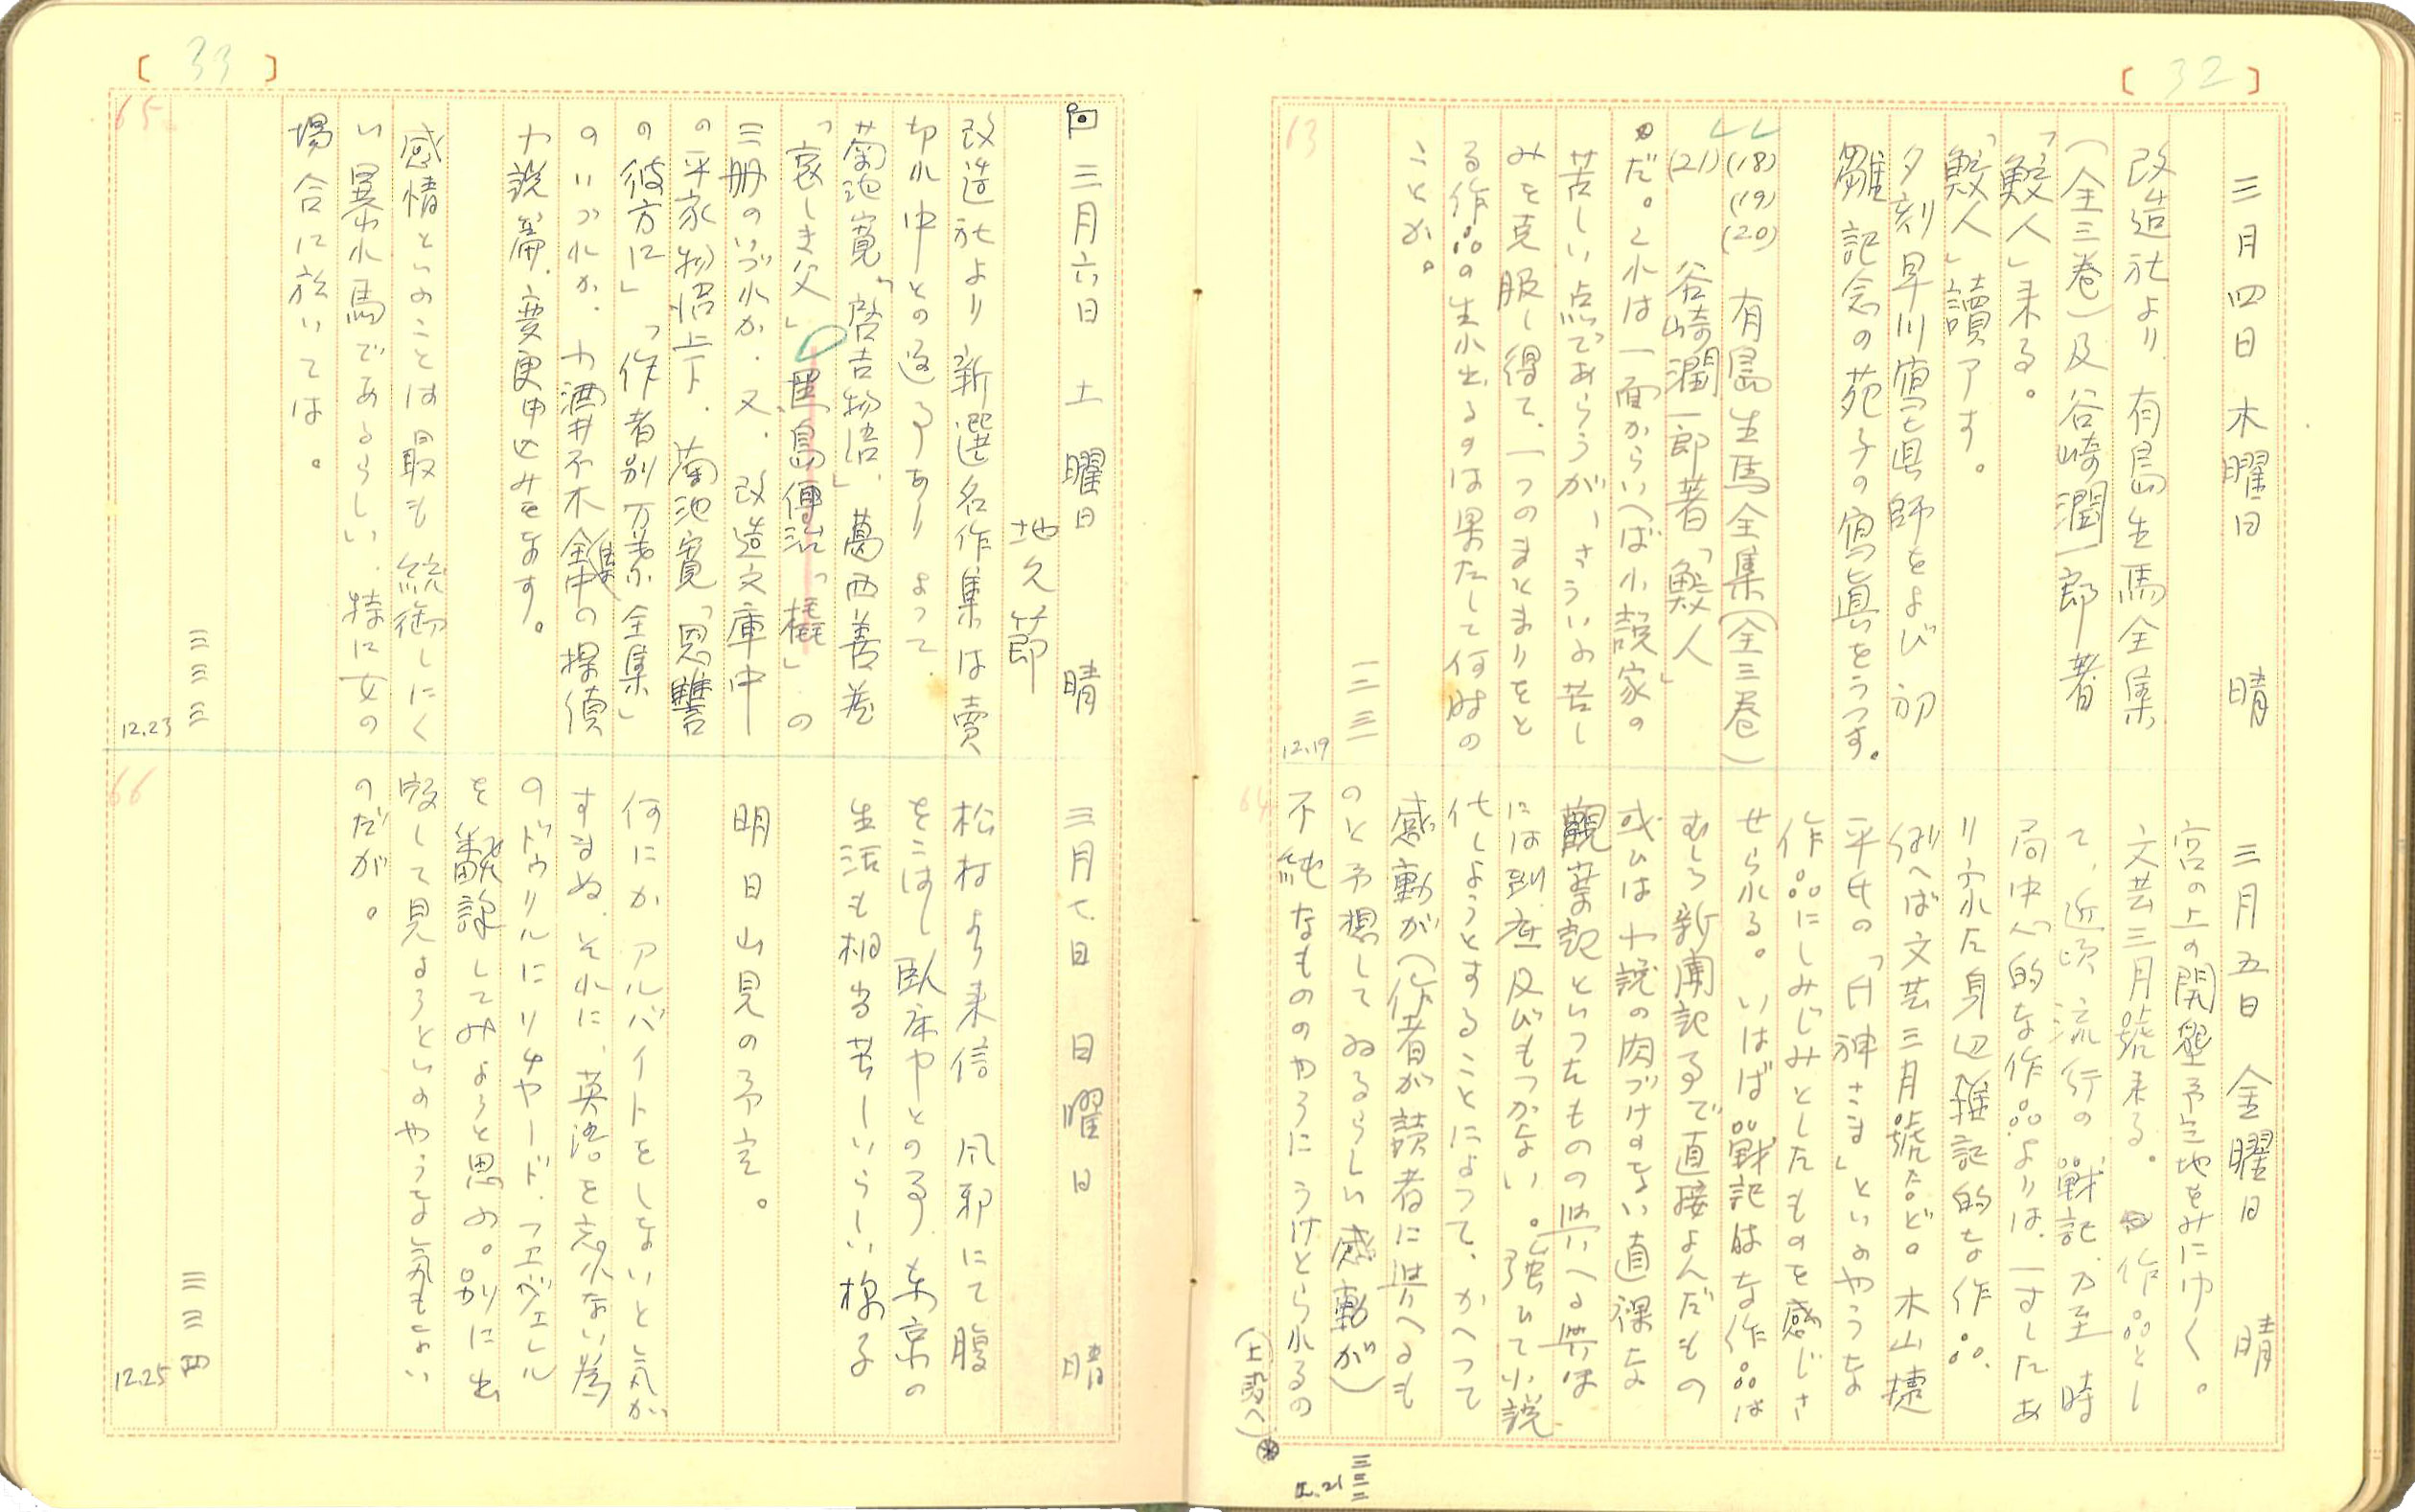 〔32〕
三月四日 木曜日 晴
改造社より、有島生馬全集
（全三巻）及谷崎潤一郎著
「鮫人」来る。
「鮫人」讀了す。
夕刻早川寫真師をよび 初
雛記念の苑子の寫眞をうつす。
(18) (19) (20) 有島生馬全集（全三巻）
(21) 谷崎潤一郎著「鮫人」
だ。これは一面からいへば小説家の
苦しい点であらうが、さういふ苦し
みを克服し得て、一つのまとまりをと
る作品の生れ出るのは果たして何時の
ことか。
三三
12.19
63
三月五日 金曜日 晴
宮の上の開墾予定地をみにゆく。
文芸三月號来る。作品とし
て、近頃流行の戰記、乃至 時
局中心的な作品よりは、一すしたあ
りふれた身辺雑記的な作品、
例へば文芸三月號など。木山捷
平氏の「氏神さま」といふやうな
作品にしみじみとしたものを感じさ
せられる。いはば戰記はな作品は
むしろ新聞記事で直接よんだもの
或ひは小説の肉づけのない直裸な
觀業記といつたものの與へる與は
には到底及びもつかない。強ひて小説
化しようとすることによつて、かへつて
感動が（作者が讀者に與へるも
のと予想してゐるらしい感動が）
不純なもののやうにうけとられるの
（上段へ）
三三二
12.21
64
〔33〕
三月六日 土曜日 晴
地久節
改造社より 新選名作集は賣
切れ中との返事あり よつて、
菊池寛「啓吉物語」、葛西善蔵
「哀しき父」 里島傳治「橇」の
三冊のいづれか、又、改造文庫中
の平家物語上下、菊池寛「恩讐
の彼方に」「作者別万葉全集」
のいづれか、小酒井不木全集中の探偵
小説篇、変更申込みをなす。
感情といふことは最も統御しにく
い暴れ馬であるらしい、特に女の
場合に於いては。
三三三
12.23
65
三月七日 日曜日 晴
松村より来信 風邪にて腹
をこはし臥床中との事 東京の
生活も相当苦しいらしい様子
明日山見の予定。
何にかアルバイトをしないと気が
すまぬ、それに、英語を忘れない為
のドゥリルにリチャード、フェヴェレル
を飜訳してみようと思ふ。別に出
版して見ようといふやうな気もない
のだが。
三三四
12.25
66